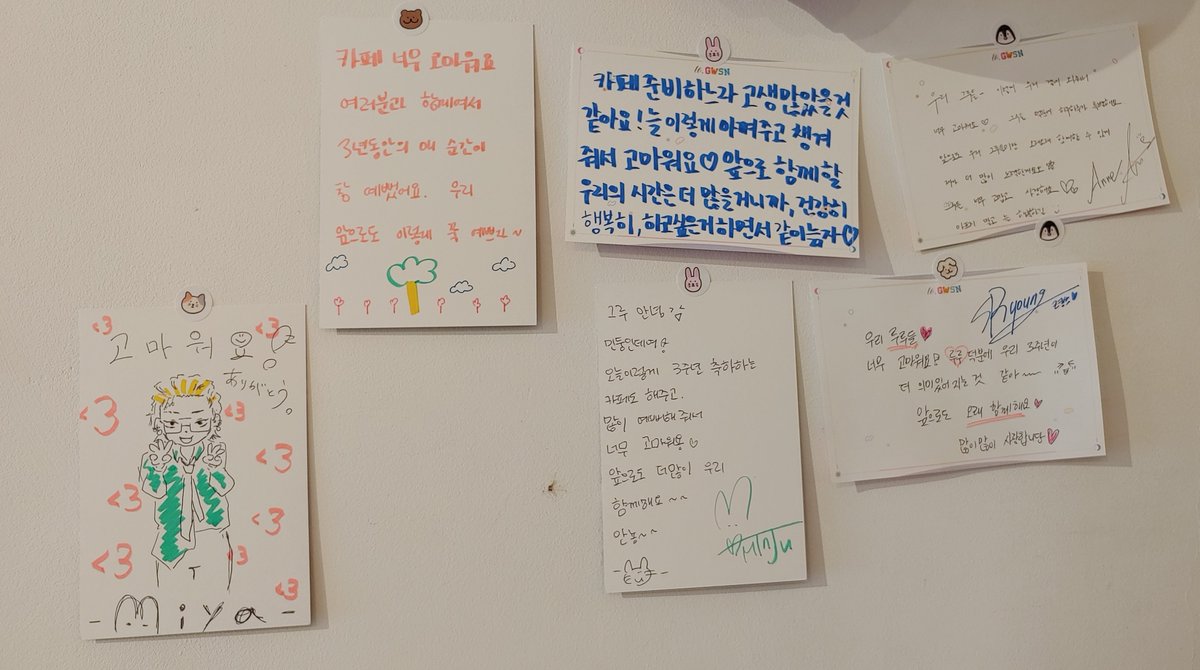 고마워요
ありがとう。
<3
<3
<3
<3
<3
<3
<3
<3
<3
<3
-Miya-
카페 너무 고마워요
여러분과 함께여서
3년동안의 매 순간이
참 예뻤어요. 우리
앞으로도 이렇게 쭉 예쁘자~
GWSN
카페 준비하느라 고생많았을것
같아요! 늘 이렇게 아껴주고 챙겨
줘서 고마워요♡ 앞으로 함께할
우리의 시간은 더 많을거니까, 건강히
행복히, 하고싶은거 하면서 같이놀자♡
그루 안녕
민둥인데여
오늘이렇게 3주년 축하하는
카페도 해주고.
많이 예뻐해줘서
너무 고마워용♡
앞으로 더많이 우리
함께해요~~
안뇽~~
♡MINJU
GWSN
우리
너무 고마워요♡
앞으로도 우리
너무 고맙고 사랑해요♡
Anne
GWSN
Ryoung
우리 루루들♥
너무 고마워요 루루 덕분에 우리 3주년이
더 의미있어 지는 것 같아~
앞으로도 오래 함께해요♥
많이많이 사랑합니다♥